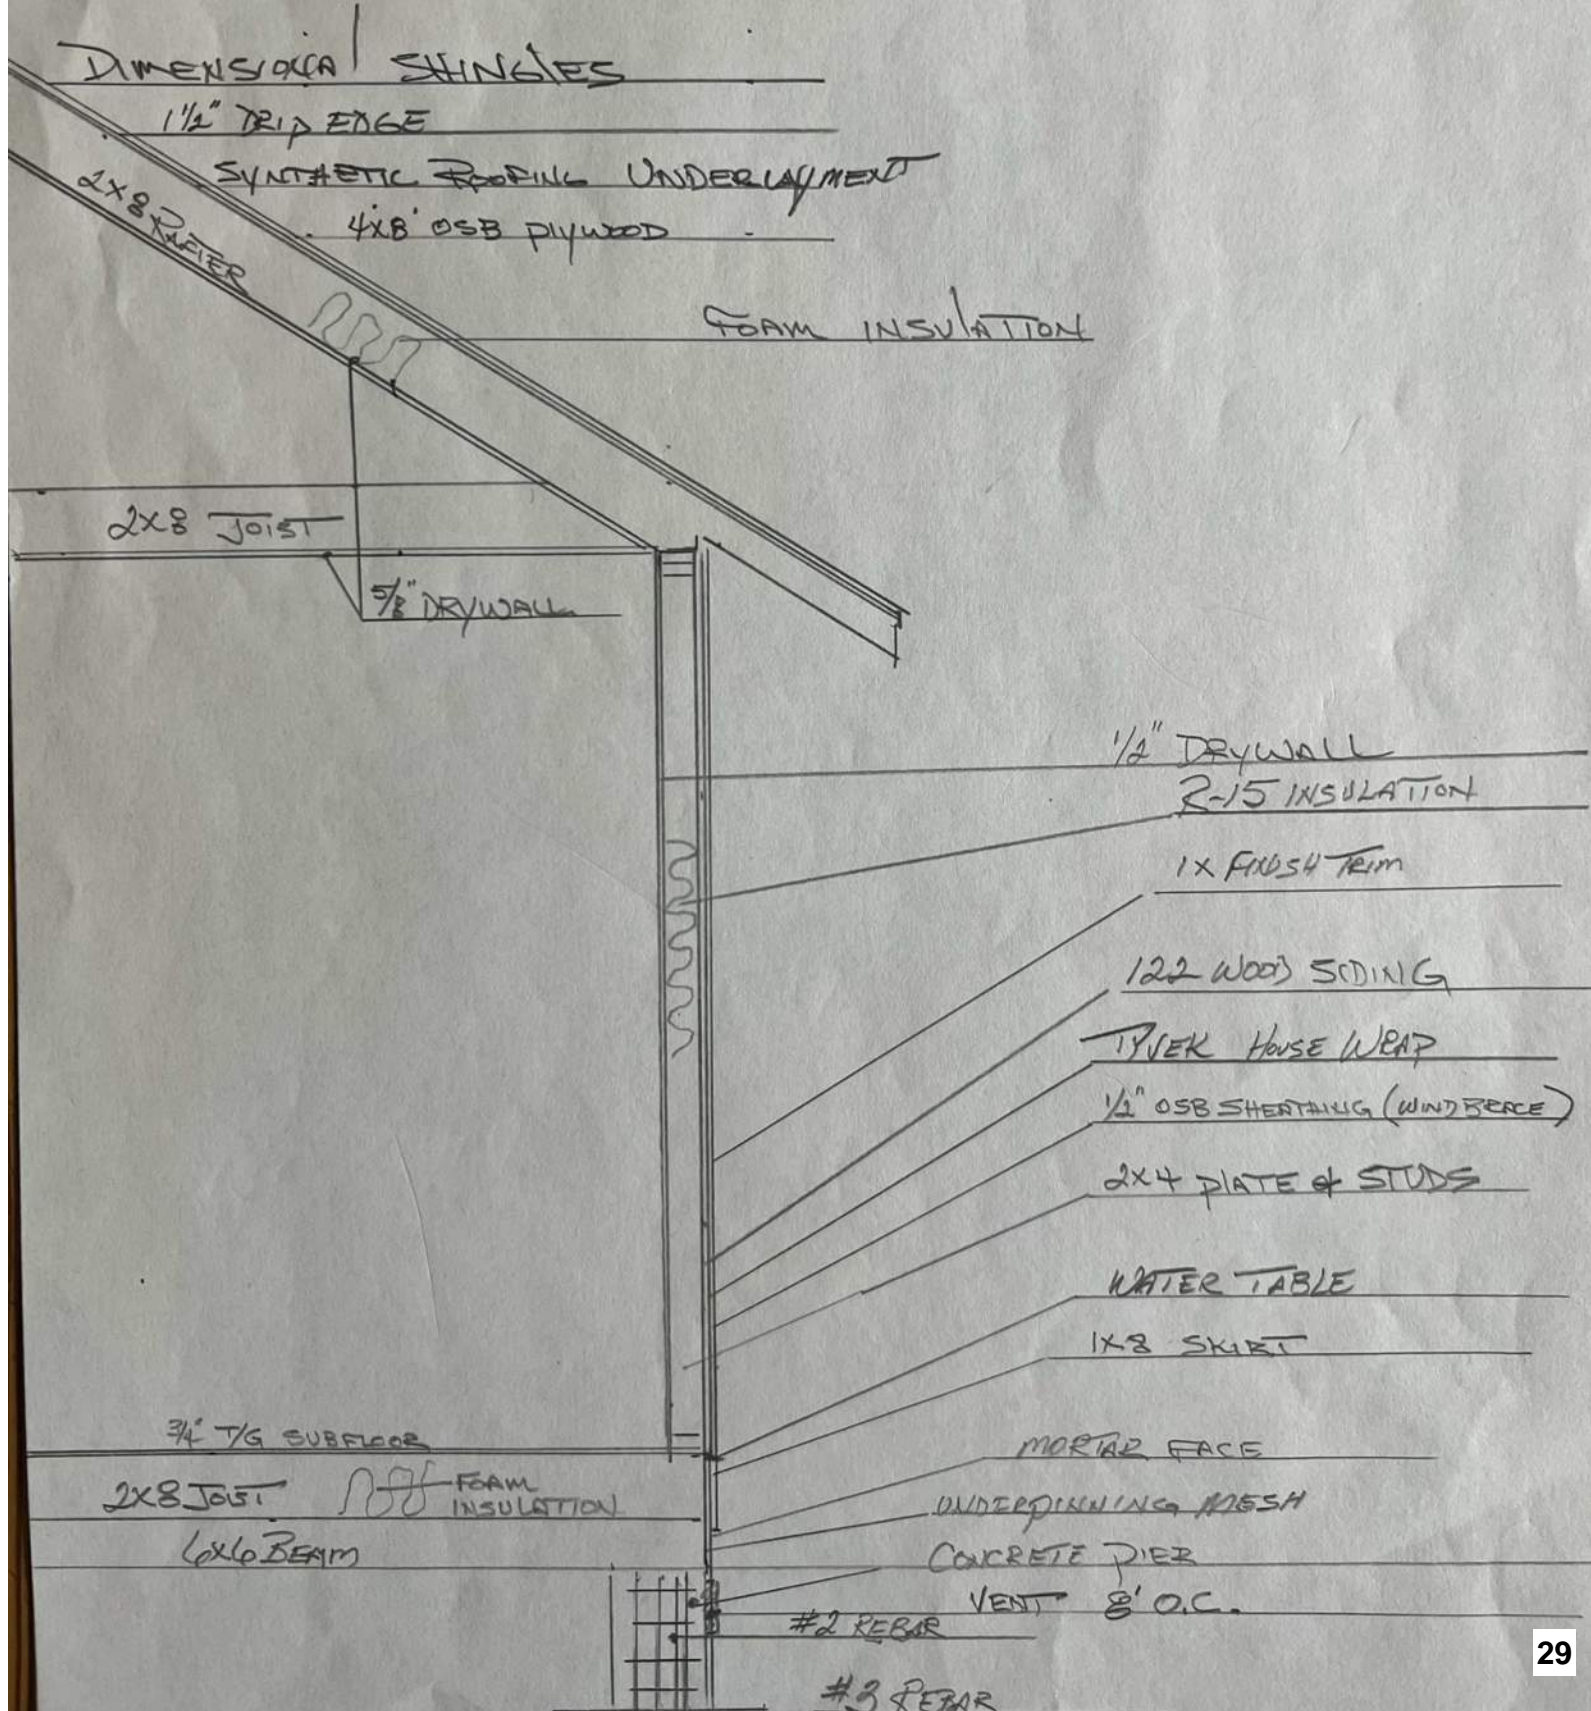 DIMENSIONAL SHINGLES
1 1/2" DRIP EDGE
SYNTHETIC ROOFING UNDERLAYMENT
4'x8' OSB PLYWOOD
2x8 RAFTER
FOAM INSULATION
2x8 JOIST
5/8" DRYWALL
1/2" DRYWALL
R-15 INSULATION
1x FINISH TRIM
122 WOOD SIDING
TYVEK HOUSE WRAP
1/2" OSB SHEATHING (WIND BRACE)
2x4 PLATE & STUDS
WATER TABLE
1x8 SKIRT
3/4" T/G SUBFLOOR
MORTAR FACE
2x8 JOIST
FOAM
INSULATION
UNDERPINNING MESH
6x6 BEAM
CONCRETE PIER
VENT 8' O.C.
#2 REBAR
#3 REBAR
29